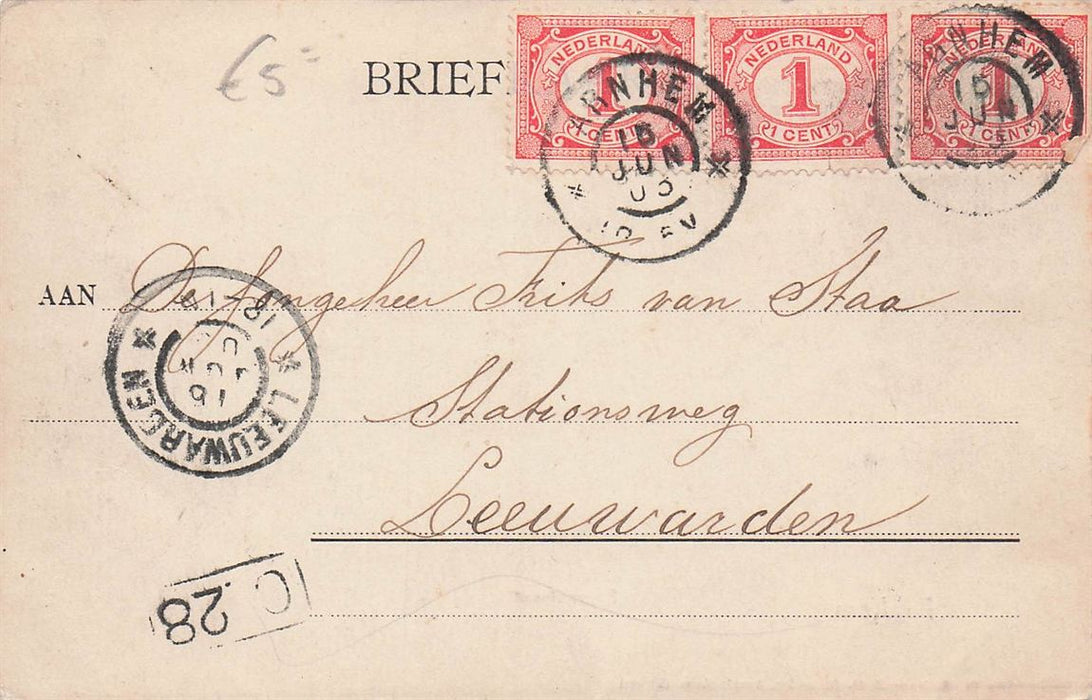 €5-
BRIEF
NEDERLAND 1 CENT
NEDERLAND 1 1 CENT
NEDERLAND 1 1 CENT
ARNHEM
16 JUN
ARNHEM
16 JUN
AAN De Jongeheer Frits van Staa
Stationsweg
Leeuwarden
LEEUWARDEN
16
C. 28